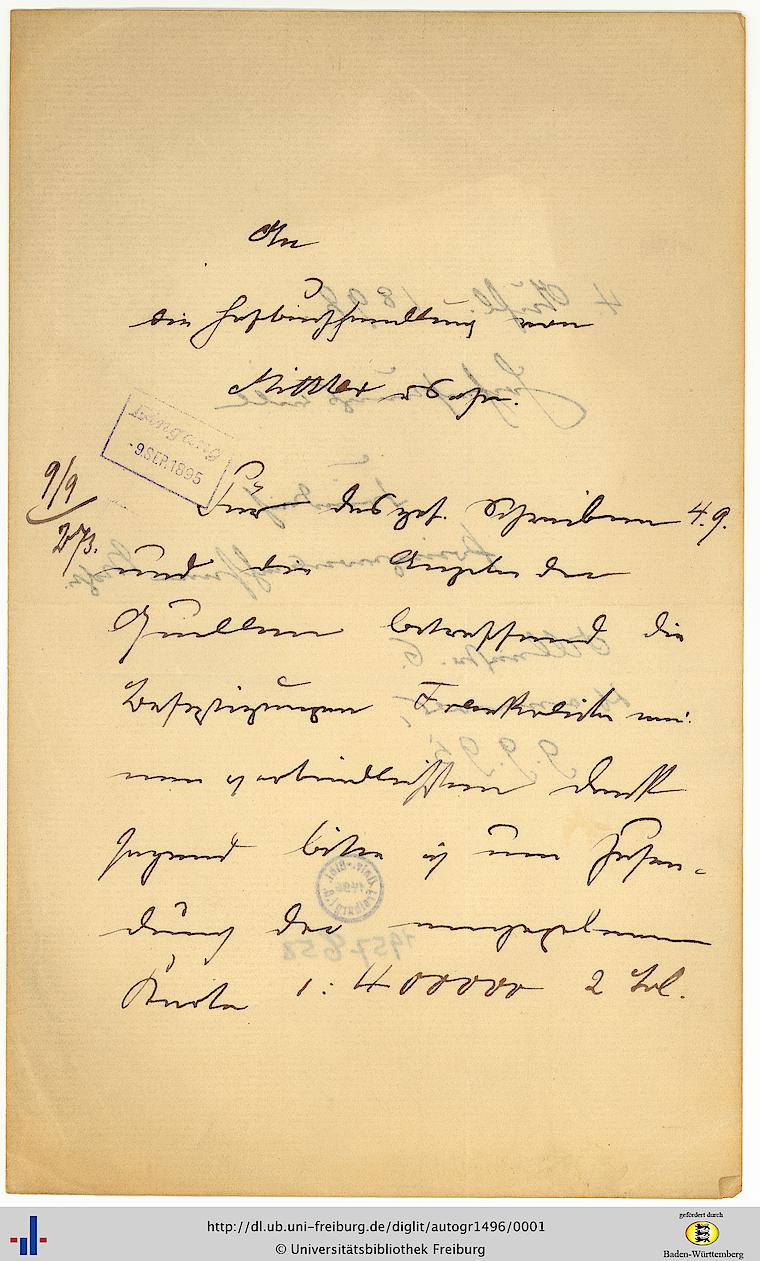 An
die Hofbuchhandlung von
Mittler & Sohn.
Eingang
-9.SEP.1895
9/9
Für das gef. Schreiben 4.9.
und die Angabe der
Quellen betreffend die
Befestigungen Frankreichs mei-
nen verbindlichsten Dank
sagend bitte ich um Zusen-
dung der angegebenen
Karte 1:400000 2 Col.
http://dl.ub.uni-freiburg.de/diglit/autogr1496/0001
© Universitätsbibliothek Freiburg
gefördert durch
Baden-Württemberg